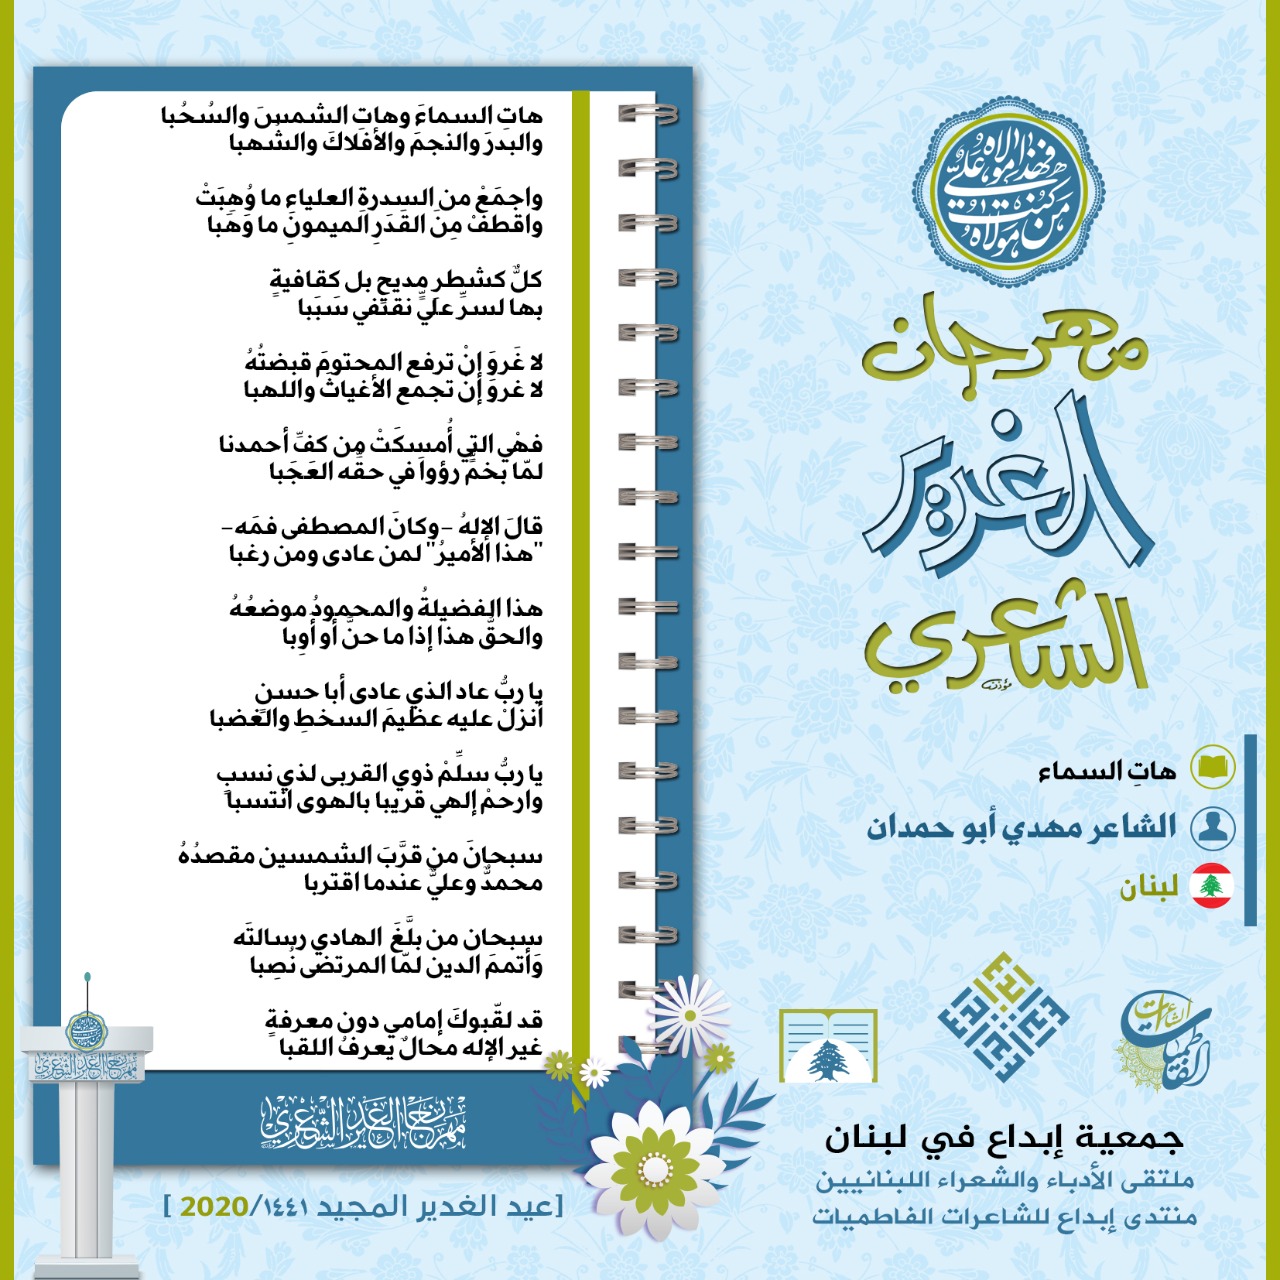 من كنت مولاه فهذا علي مولاه
مهرجان
الغدير
الشعري
هاتِ السماء
الشاعر مهدي أبو حمدان
لبنان
هاتِ السماءَ وهاتِ الشمسَ والسُحُبا
والبدرَ والنجمَ والأفلاكَ والشُهبا
واجمَعْ من السدرةِ العلياءِ ما وُهِبَتْ
واقطفْ مِنَ القَدَرِ الميمونِ ما وَهَبا
كلٌّ كشطرِ مديحٍ بل كقافيةٍ
بها لسرِّ عليٍّ نقتفي سَبَبا
لا غَروَ إنْ ترفع المحتومَ قبضتُهُ
لا غروَ إن تجمع الأغياثَ واللهبا
فهْي التي أُمسِكَتْ مِن كفِّ أحمدنا
لمّا بخمٍّ رؤوا في حقِّه العَجَبا
قالَ الإلهُ -وكانَ المصطفى فمَه-
"هذا الأميرُ" لمن عادى ومن رغبا
هذا الفضيلةُ والمحمودُ موضعُهُ
والحقُّ هذا إذا ما حنَّ أو أوِبا
يا ربُّ عاد الذي عادى أبا حسنٍ
أنزلْ عليه عظيمَ السخطِ والغضبا
يا ربُّ سلِّمْ ذوي القربى لذي نسبٍ
وارحمْ إلهي قريبا بالهوى انتسبا
سبحانَ من قرَّبَ الشمسين مقصدُهُ
محمدٌ وعليٌّ عندما اقتربا
سبحان من بلَّغَ الهادي رسالتَه
وَأتممَ الدين لمّا المرتضى نُصِبا
قد لقّبوكَ إمامي دون معرفةٍ
غير الإله محالٌ يعرفُ اللقبا
مهرجان الغدير الشعري
[عيد الغدير المجيد ١٤٤١/2020 ]
إبداع
الشاعرات الفاطميات
جمعية إبداع في لبنان
ملتقى الأدباء والشعراء اللبنانيين
منتدى إبداع للشاعرات الفاطميات